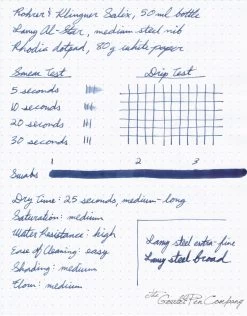 Rohrer & Klingner Salix, 50 ml bottle
Lamy Al-Star, medium steel nib
Rhodia dotpad, 80g white paper
Smear Test
Drip Test
5 seconds
10 seconds
20 seconds
30 seconds
1 2 3
Swabs
Dry Time: 25 seconds, medium-long
Saturation: medium
Water Resistance: high
Ease of Cleaning: easy
Shading: medium
Flow: medium
Lamy steel extra-fine
Lamy steel broad
the Goulet Pen Company